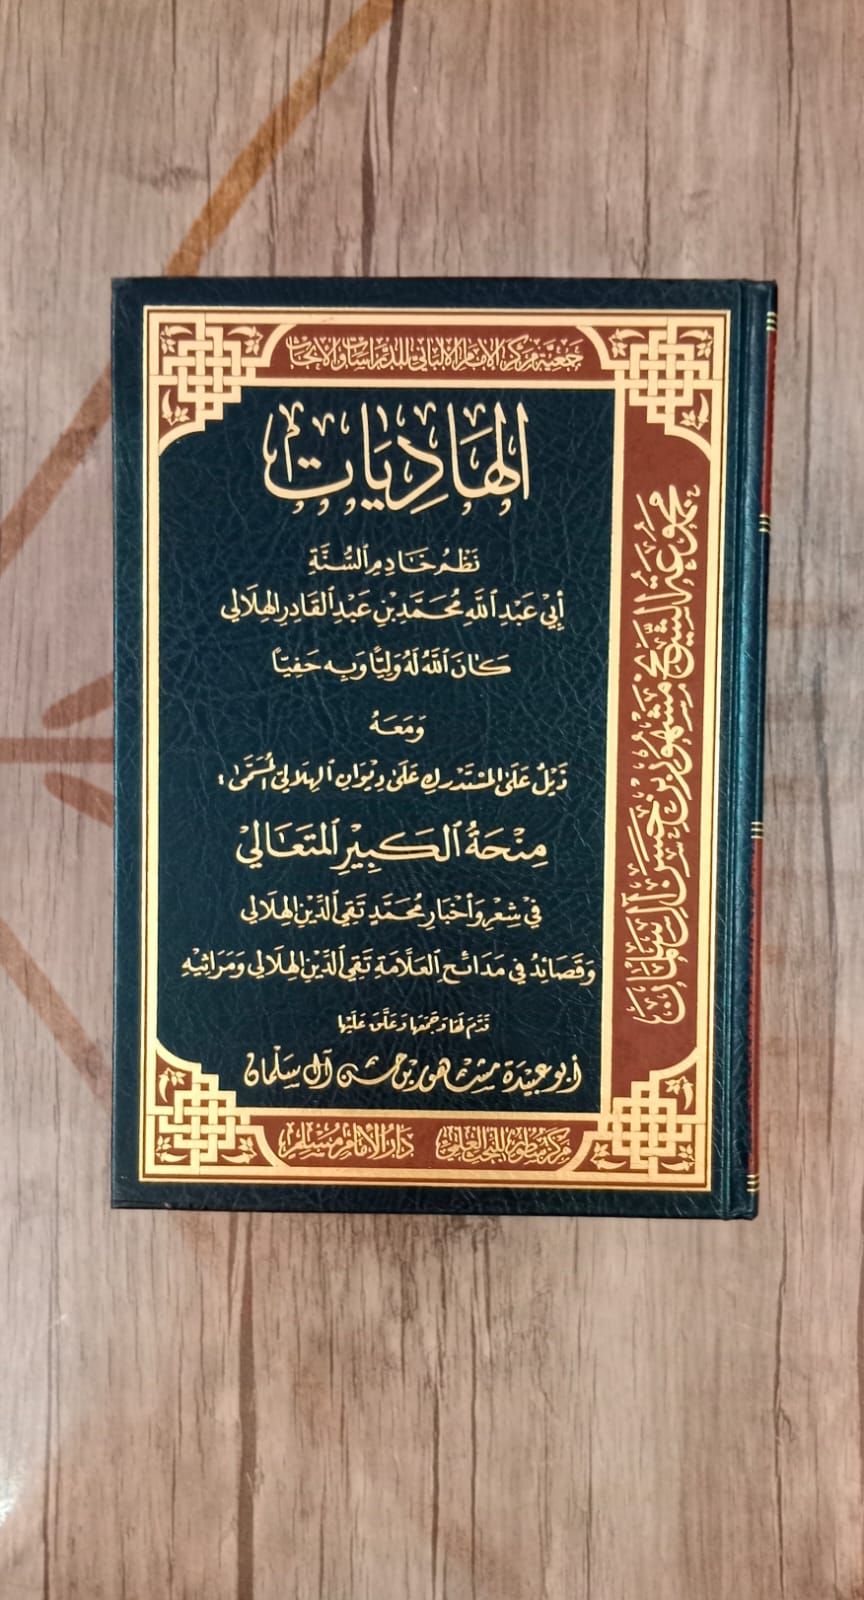 جمعية مركز الإمام الألباني للدراسات والأبحاث
الهَادِيَات
نَظْمُ خَادِمِ السُّنَّةِ
أَبِي عَبْدِ اللَّهِ مُحَمَّدِ بْنِ عَبْدِ القَادِرِ الهِلَالِي
كَانَ اللَّهُ لَهُ وَلِيًّا وَبِهِ حَفِيًّا
وَمَعَهُ
ذَيْلٌ عَلَى المُسْتَدْرَكِ عَلَى دِيْوَانِ الهِلَالِيِّ المُسَمَّى:
مِنْحَةُ الكَبِيْرِ المُتَعَالِي
فِي شِعْرِ وَأَخْبَارِ مُحَمَّدٍ تَقِيِّ الدِّيْنِ الهِلَالِي
وَقَصَائِدُ فِي مَدَائِحِ العَلَّامَةِ تَقِيِّ الدِّيْنِ الهِلَالِي وَمَرَاثِيْهِ
قَدَّمَ لَهَا وَجَمَعَهَا وَعَلَّقَ عَلَيْهَا
أبو عبيدة مشهور بن حسن آل سلمان
مركز سطور للبحث العلمي دار الإمام مسلم
مجموعة الشيخ مشهور بن حسن آل سلمان